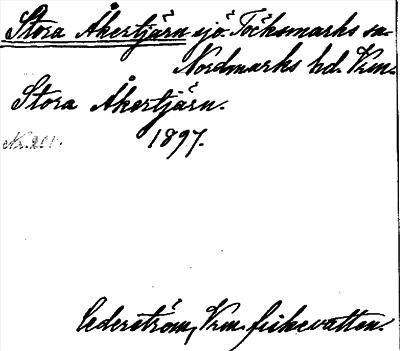 Stora Åkertjärn sjö Töcksmarks sn.
Nordmarks hd. Vrm.
Stora Åkertjärn.
Nr. 201.
1897.
Cederström, Vrm. fiskevatten.